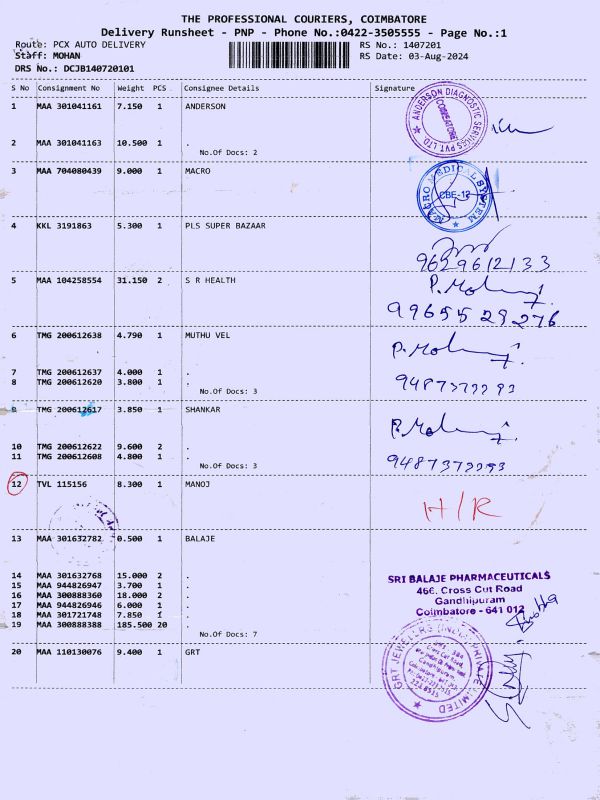 THE PROFESSIONAL COURIERS, COIMBATORE
Delivery Runsheet - PNP - Phone No.:0422-3505555 - Page No.:1
Route: PCX AUTO DELIVERY RS No.: 1407201
Staff: MOHAN RS Date: 03-Aug-2024
DRS No.: DCJB140720101
S No Consignment No Weight PCS Consignee Details Signature
1 MAA 301041161 7.150 1 ANDERSON
ANDERSON DIAGNOSTIC SERVICES PVT. LTD.
COIMBATORE
2 MAA 301041163 10.500 1 .
No.Of Docs: 2
3 MAA 704080439 9.000 1 MACRO
MACRO MEDICAL SYSTEM
CBE-12
4 KKL 3191863 5.300 1 PLS SUPER BAZAAR
9629612133
5 MAA 104258554 31.150 2 S R HEALTH
P. Mohan
99655 29276
6 TMG 200612638 4.790 1 MUTHU VEL
P. Mohan
7 TMG 200612637 4.000 1 .
8 TMG 200612620 3.800 1 .
No.Of Docs: 3
9 TMG 200612617 3.850 1 SHANKAR
P. Mohan
10 TMG 200612622 9.600 2 .
11 TMG 200612608 4.800 1 .
No.Of Docs: 3
12 TVL 115156 8.300 1 MANOJ
H/R
13 MAA 301632782 0.500 1 BALAJE
14 MAA 301632768 15.000 2 .
15 MAA 944826947 3.700 1 .
16 MAA 300888360 18.000 2 .
17 MAA 944826946 6.000 1 .
18 MAA 301721748 7.850 1 .
19 MAA 300888388 185.500 20 .
No.Of Docs: 7
SRI BALAJE PHARMACEUTICALS
466, Cross Cut Road
Gandhipuram
Coimbatore - 641 012
20 MAA 110130076 9.400 1 GRT
GRT JEWELLERS (INDIA) PRIVATE LIMITED